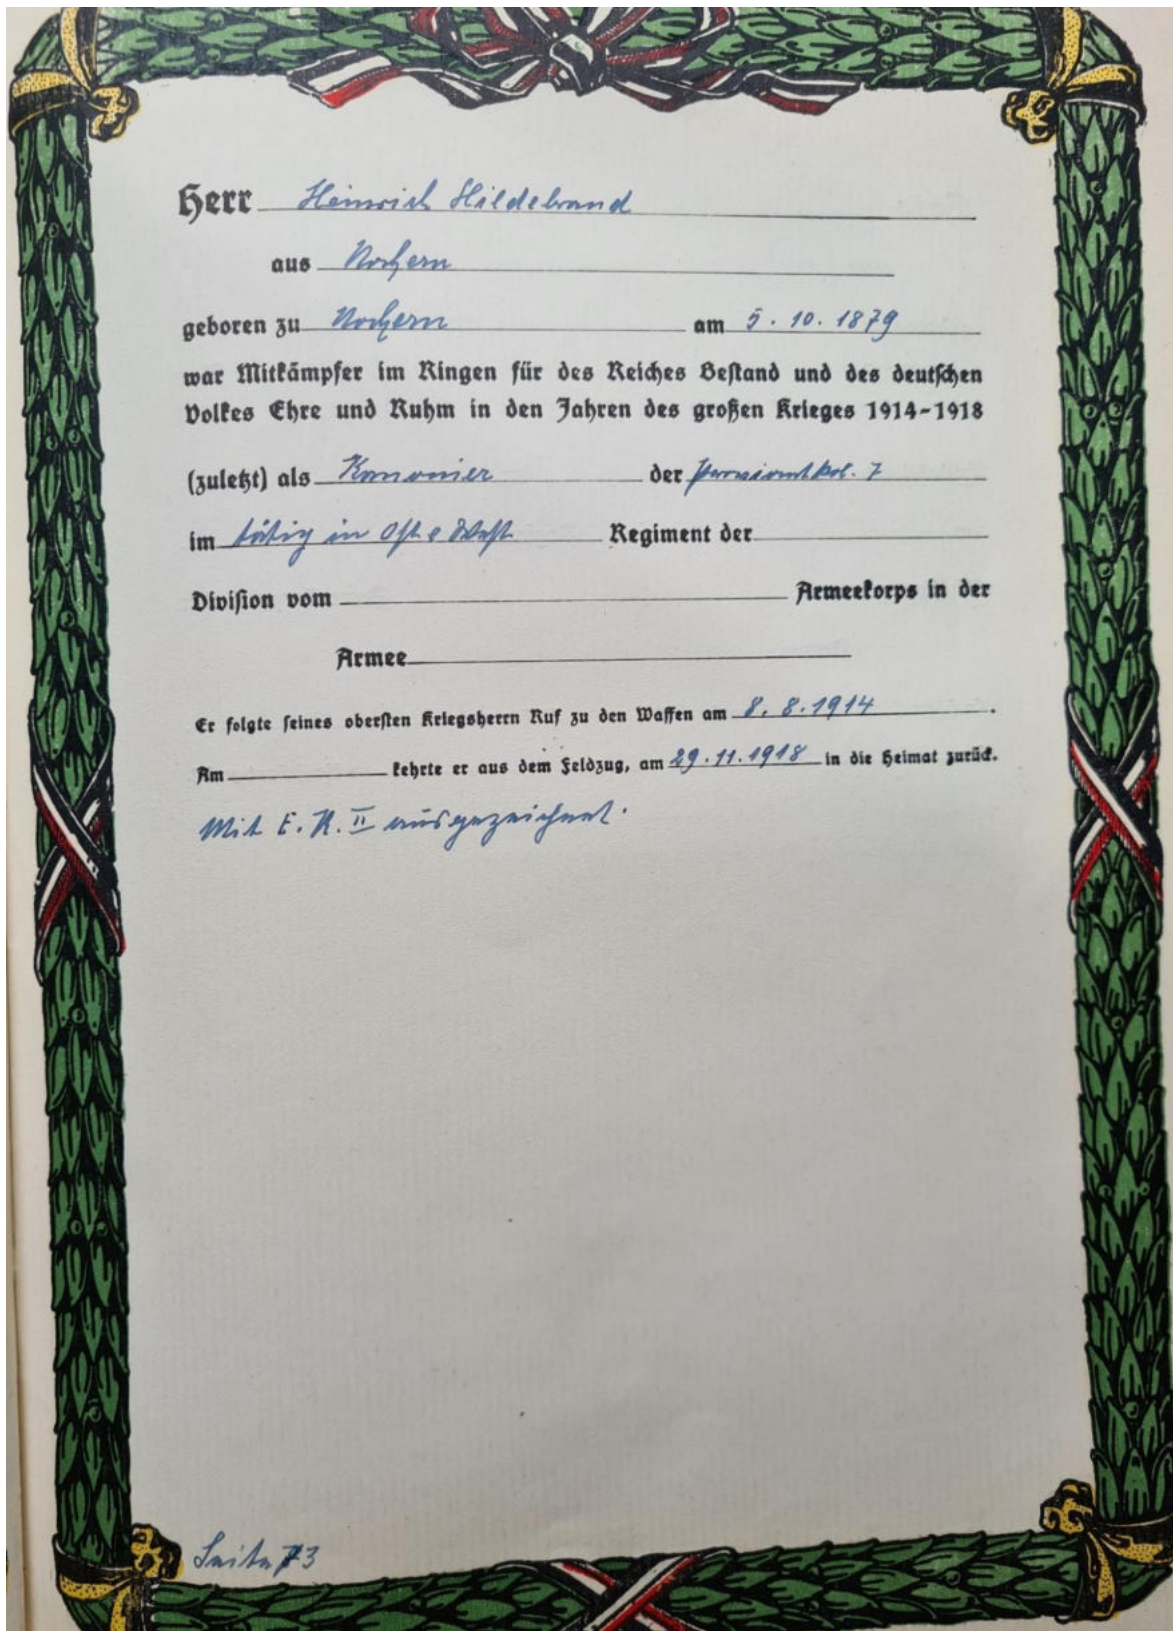 Herr Heinrich Hildebrand
aus Nochern
geboren zu Nochern am 5. 10. 1879
war Mitkämpfer im Ringen für des Reiches Bestand und des deutschen
Volkes Ehre und Ruhm in den Jahren des großen Krieges 1914-1918
(zuletzt) als Kanonier der kol. 7
im tätig in Ost & West Regiment der
Division vom Armeekorps in der
Armee
Er folgte seines obersten Kriegsherrn Ruf zu den Waffen am 8. 8. 1914.
Am kehrte er aus dem Feldzug, am 29. 11. 1918 in die Heimat zurück.
Mit E. K. II ausgezeichnet.
Seite 73